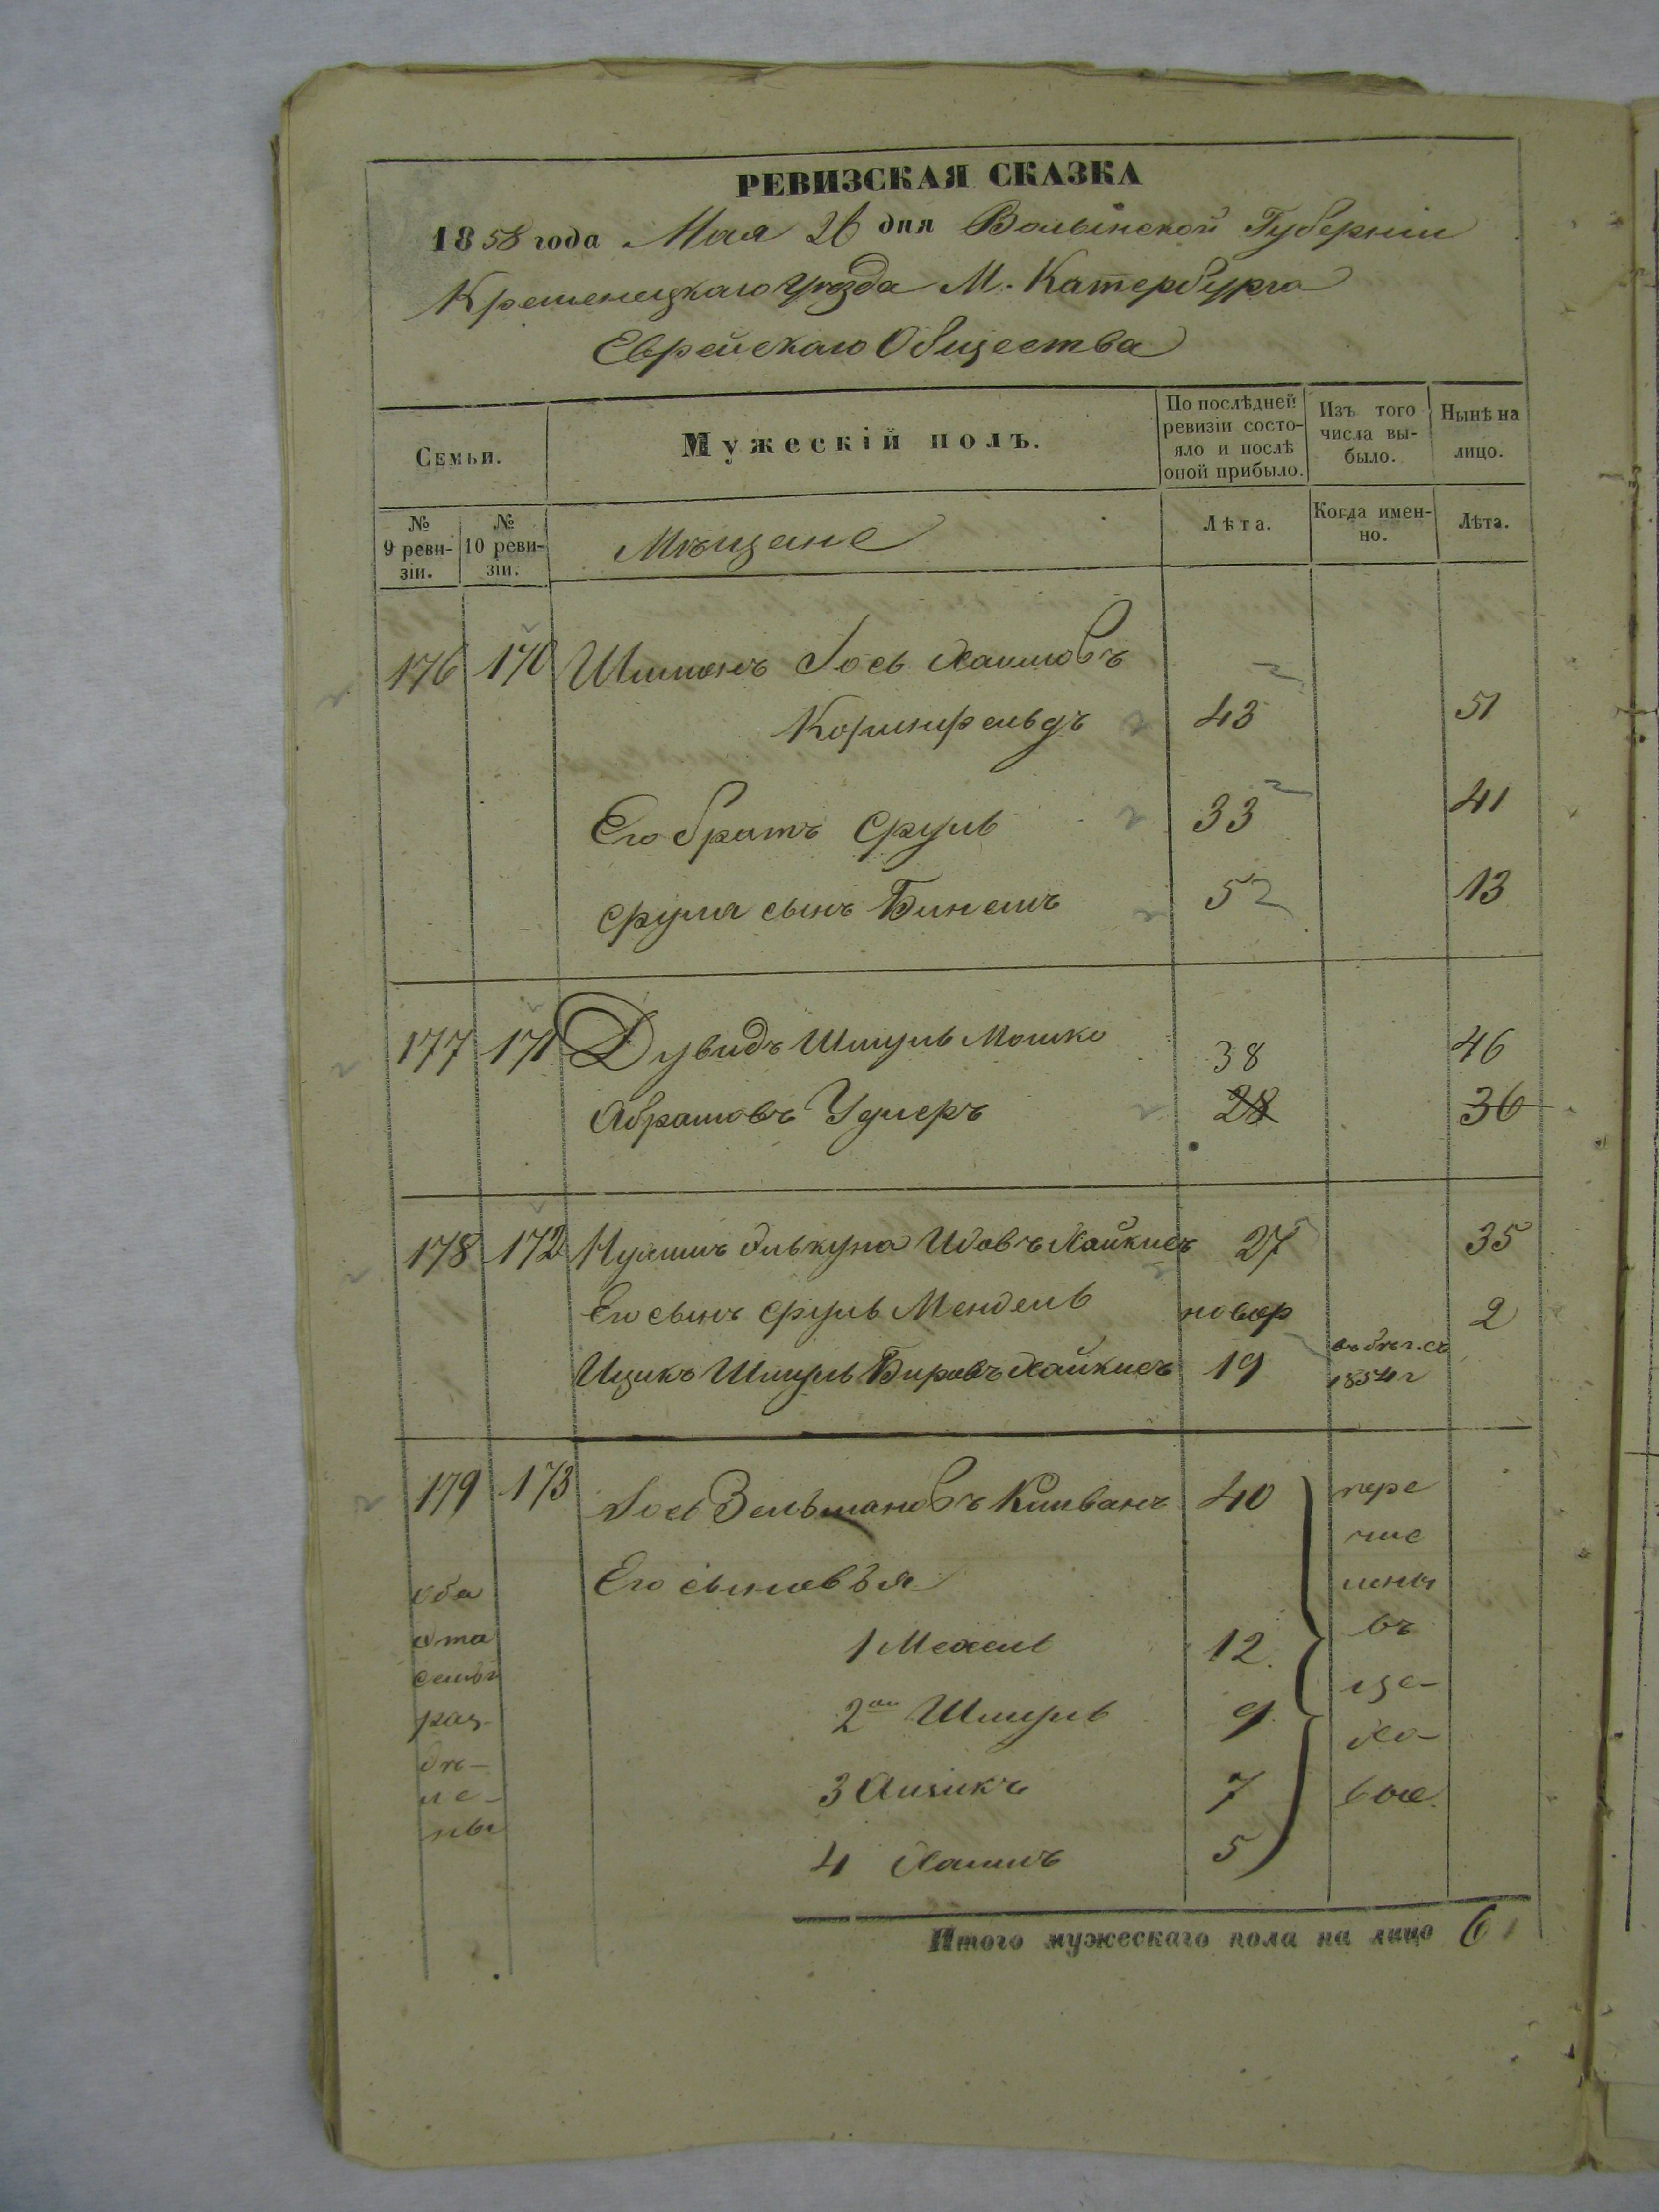 РЕВИЗСКАЯ СКАЗКА
1858 года Мая 26 дня Волынской Губерніи
Кременецкаго уѣзда М. Катербурга
Еврейскаго Общества
Семьи.
Мужескій полъ.
По послѣдней ревизіи состо-
яло и послѣ
оной прибыло.
Изъ того
числа вы-
было.
Нынѣ на
лицо.
№
9 реви-
зіи.
№
10 реви-
зіи.
Мѣщане
Лѣта.
Когда имен-
но.
Лѣта.
176 170 Шимонъ Іось Хаимовъ
Коринфельдъ 43 51
Его братъ Сруль 33 41
Сруля сынъ Бинемъ 5 13
177 171 Дувидъ Шмуль Мошко 38 46
Абрамовъ Удлеръ 28 36
178 172 Нухимъ Элькуна Идовъ Хайкисъ 27 35
Его сынъ Сруль Мендель новор 2
Ицикъ Шмуль Бировъ Хайкисъ 19 въ бѣг. съ
1854 г
179 173 Іось Зельмановъ Кимванъ 40
Его сыновья
1 Мехель 12
2ой Шмуль 9
3 Аизикъ 7
4 Хаимъ 5
пере
чис
лены
въ
це-
хо-
вые.
оба
эта
семья
раз-
дѣ-
ле-
ны
Итого мужескаго пола на лицо 6